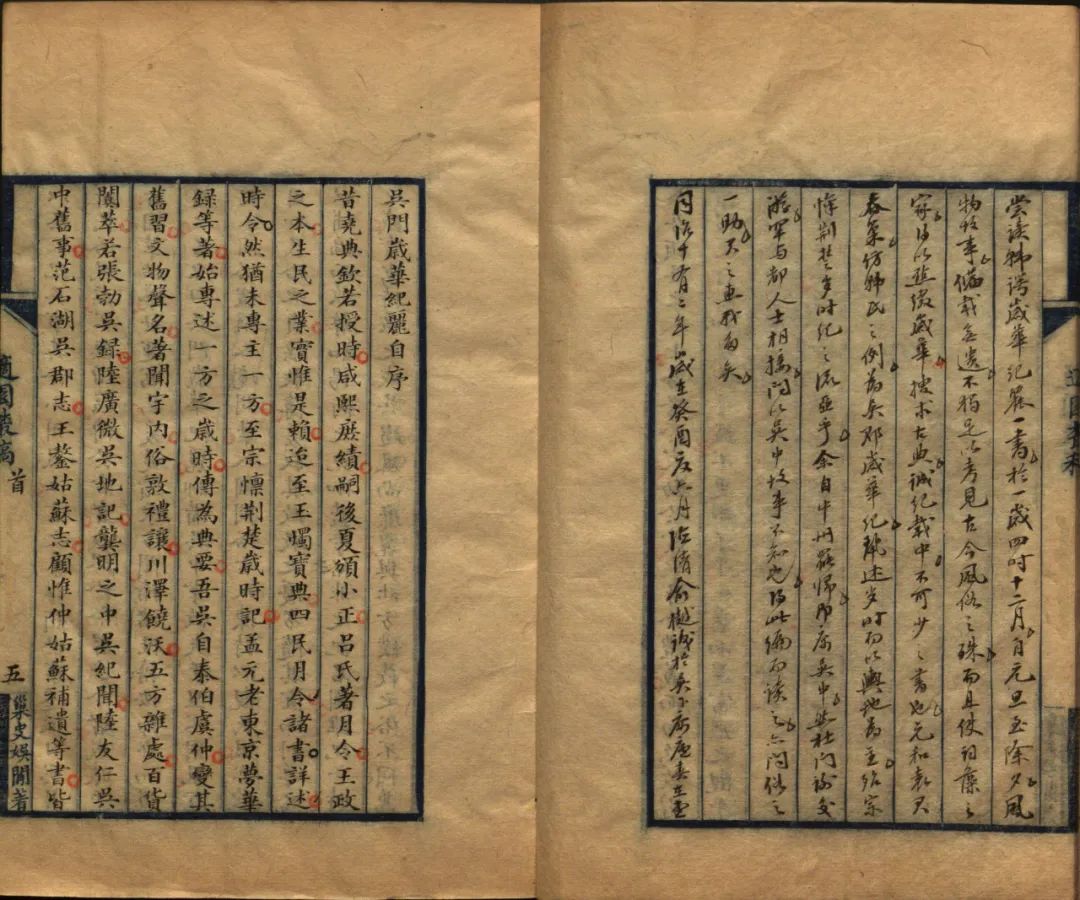 嘗讀韓諤歲華紀麗一書於一歲四時十二月自元旦至除夕風
物故事備載無遺不獨足以考見古今風俗之殊而且使詞藻之
家得以點綴歲華搜求古典誠紀載中不可少之書也元和袁君
春巢仿韓氏之例爲吳郡歲華紀麗述歲時而以輿地爲主殆宗
懍荆楚歲時紀之流亞乎余自中州罷歸即居吳中然杜門謝交
游罕與都人士相接問以吳中故事不知也得此編而讀之亦問俗之
一助天之惠我多矣
同治十有二年歲在癸酉夏六月德清俞樾識於吳下寓廬春在堂
吳門歲華紀麗自序
昔堯典欽若授時咸熙庶績嗣後夏頒小正呂氏著月令王政
之本生民之業實惟是賴迨至玉燭寶典四民月令諸書詳述
時令然猶未專主一方至宗懍荆楚歲時記孟元老東京夢華
録等著始專述一方之歲時傳為典要吾吳自泰伯虞仲變其
舊習文物聲名著聞宇內俗敦禮讓川澤饒沃五方雜處百貨
闐萃若張勃吳録陸廣微吳地記龔明之中吳紀聞陸友仁吳
中舊事范石湖吳郡志王鏊姑蘇志顧惟仲姑蘇補遺等書皆
適園叢稿
首
五
巢史娛閒著